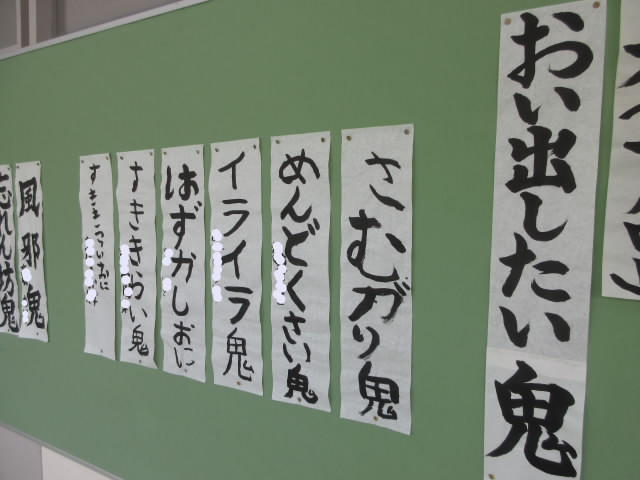 おい出したい鬼
さむがり鬼
めんどくさい鬼
イライラ鬼
はずかしおに
すききらい鬼
すききらいおに
風邪鬼
忘れん坊鬼